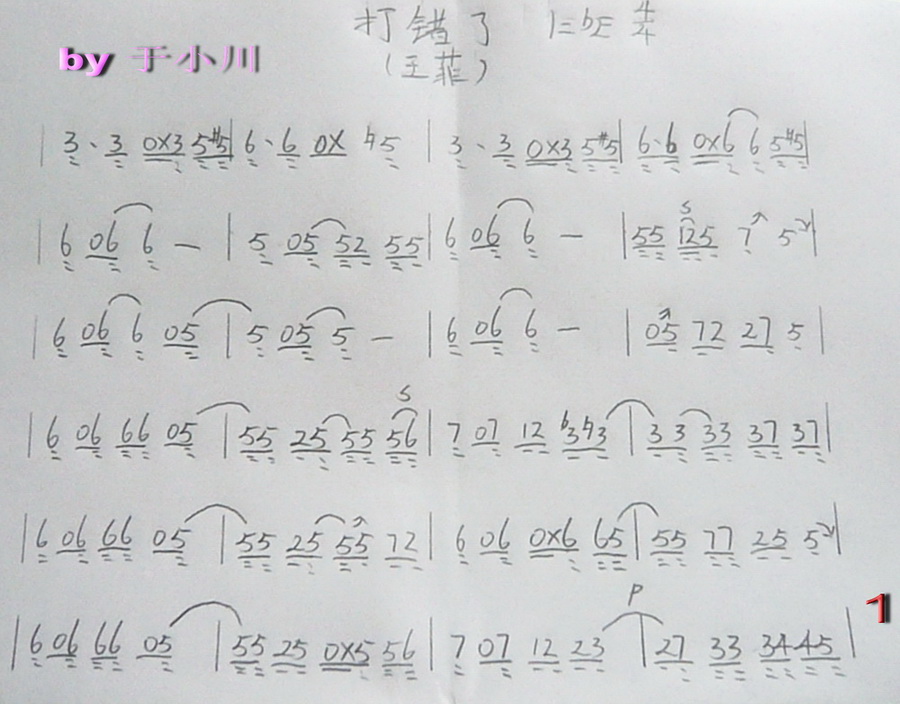 打错了 1=bE 4/4
by 于小川
(王菲)
| 3 · 3 0x3 5#5 | 6 · 6 0x ♮5 | 3 · 3 0x3 5#5 | 6 · 6 0x6 6 5#5 |
| 6 06 6 — | 5 05 52 55 | 6 06 6 — | 55 125 7 5 |
S
| 6 06 6 05 | 5 05 5 — | 6 06 6 — | 05 72 27 5 |
S
| 6 06 66 05 | 55 25 55 56 | 7 07 12 b3♮3 | 33 33 37 37 |
| 6 06 66 05 | 55 25 55 72 | 6 06 0x6 65 | 55 77 25 5 |
P
1
| 6 06 66 05 | 55 25 0x5 56 | 7 07 12 23 | 27 33 34 45 |